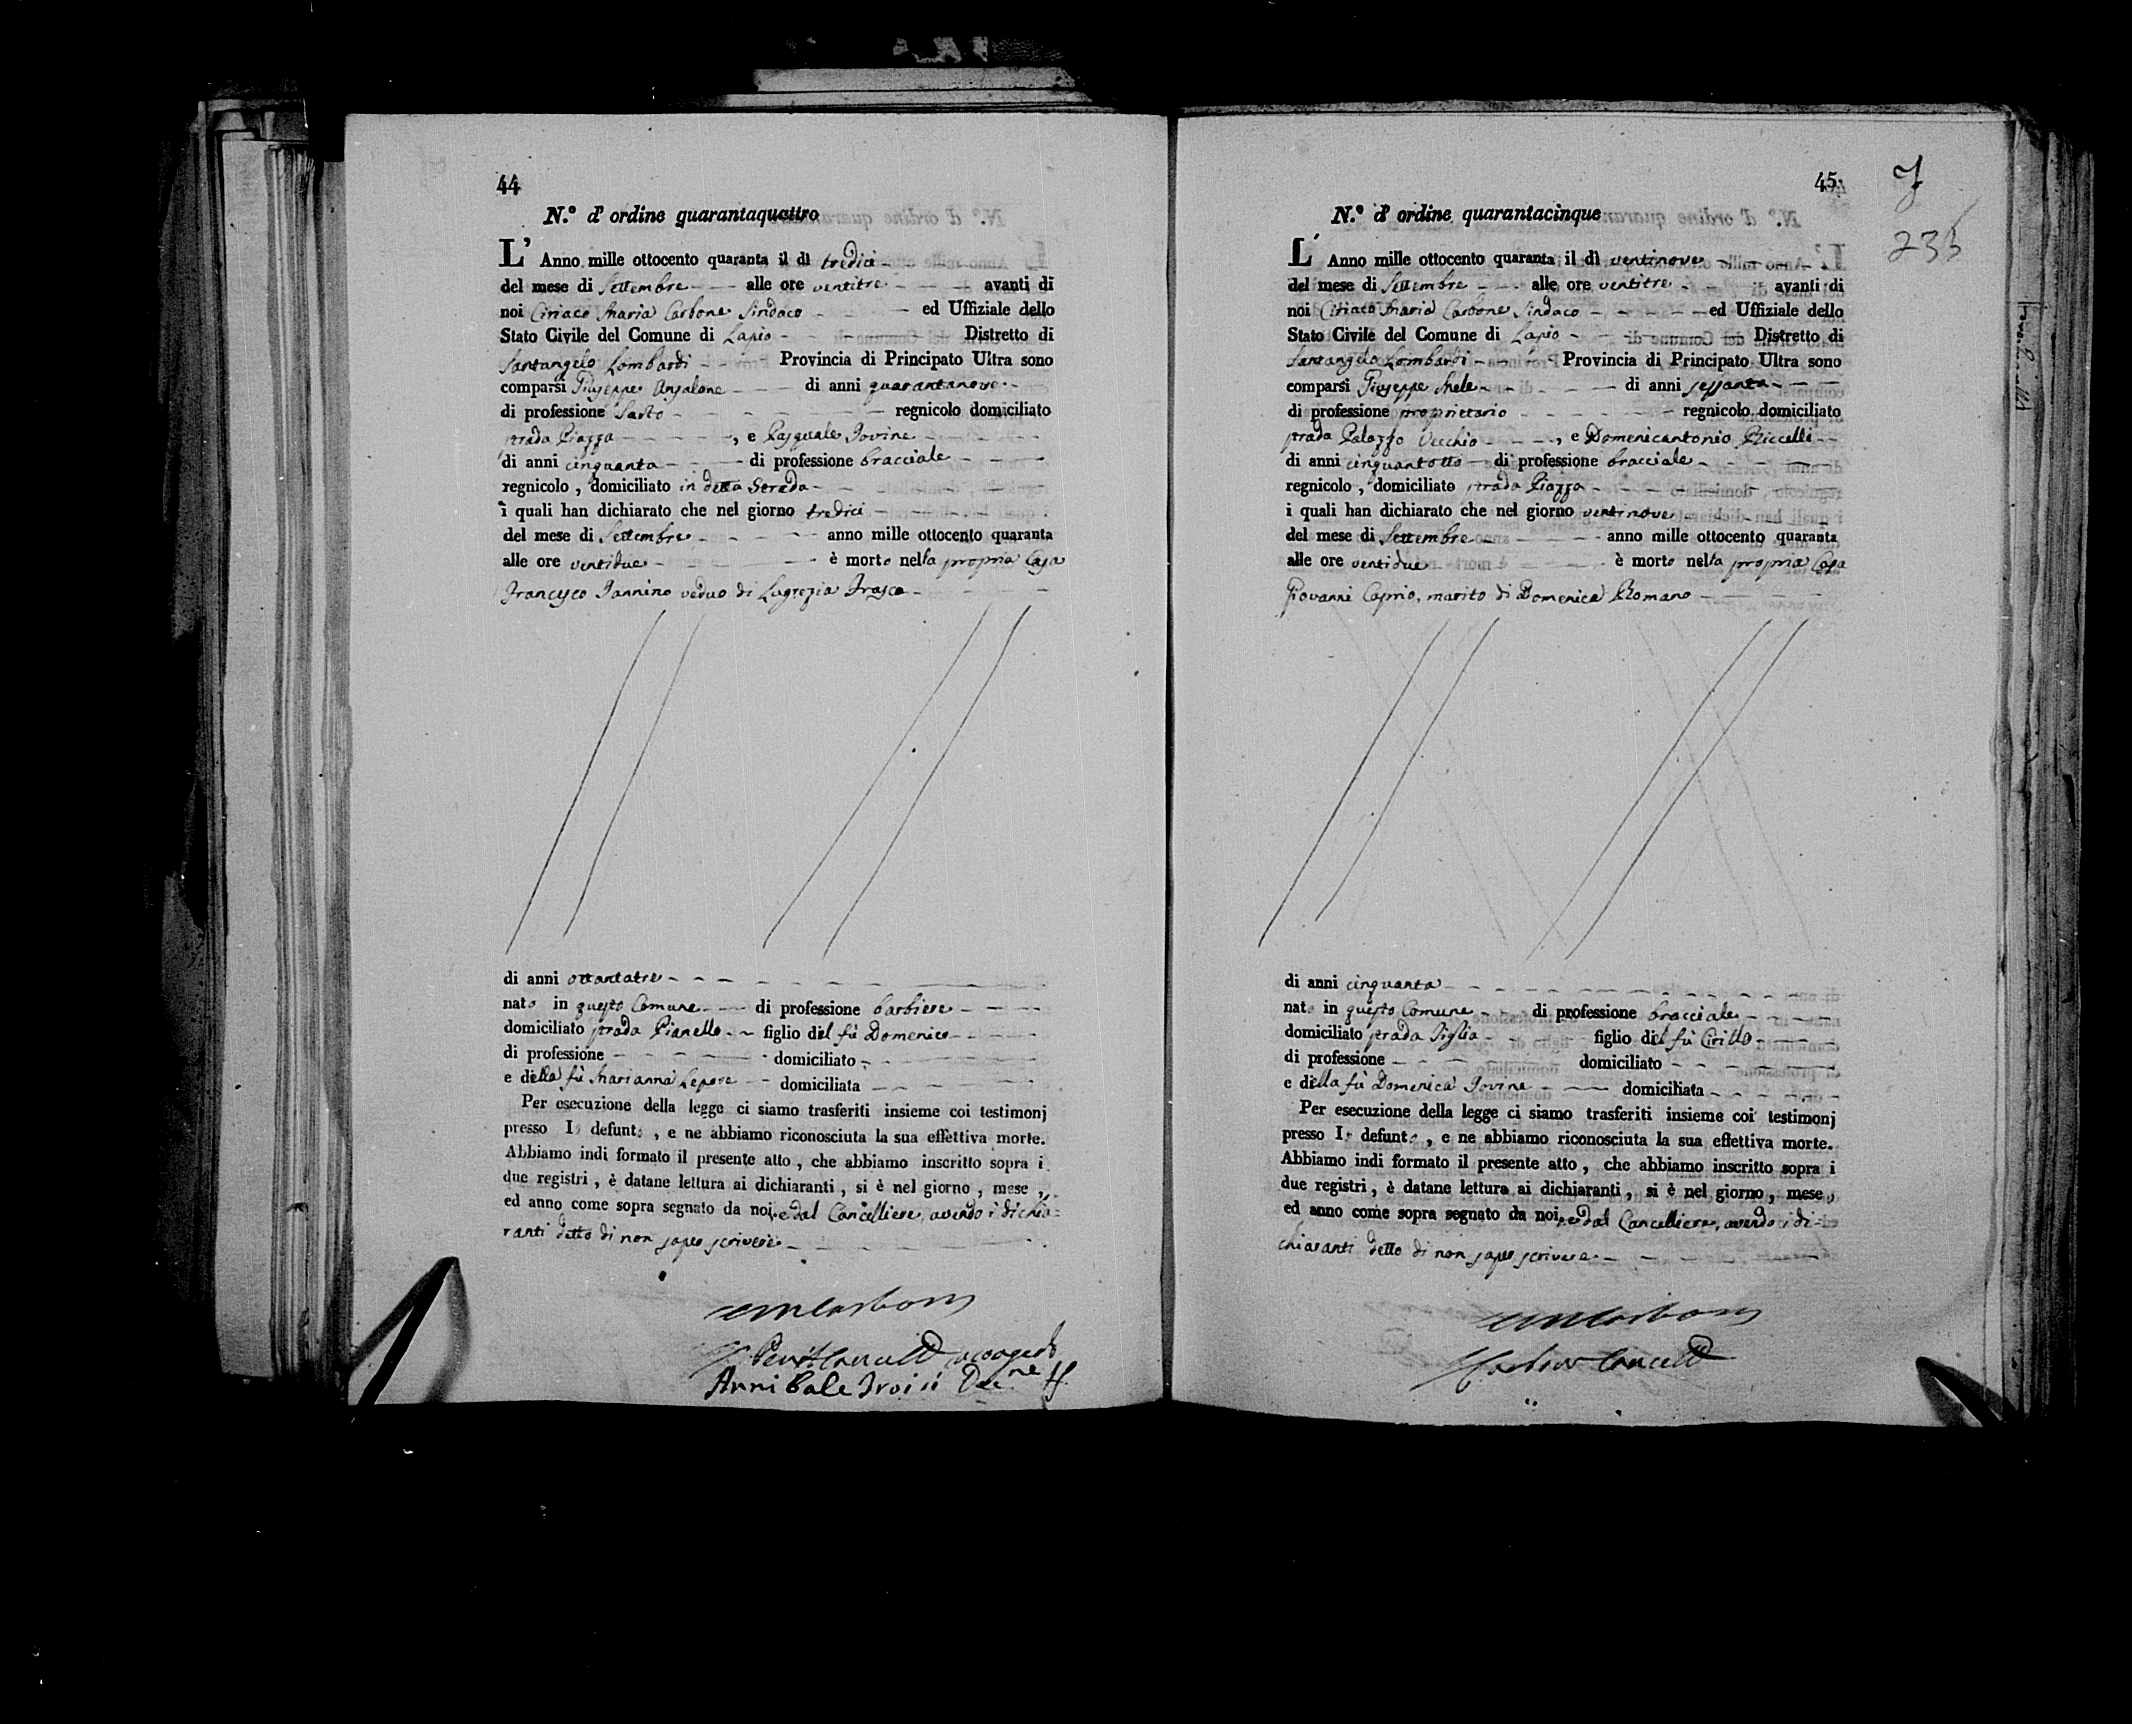 44
N.º d' ordine quarantaquattro
L' Anno mille ottocento quaranta il dì tredici
del mese di Settembre alle ore ventitre avanti di
noi Ciriaco Maria Carbone Sindaco ed Uffiziale dello
Stato Civile del Comune di Lapio Distretto di
Santangelo Lombardi Provincia di Principato Ultra sono
comparsi Giuseppe Anzalone di anni quarantanove
di professione Sarto regnicolo domiciliato
strada Piazza, e Pasquale Iovine
di anni cinquanta di professione bracciale
regnicolo, domiciliato in detta Strada
i quali han dichiarato che nel giorno tredici
del mese di Settembre anno mille ottocento quaranta
alle ore ventidue è morto nella propria Casa
Francesco Iannino veduo di Lugrezia Trasca
di anni ottantatre
nato in questo Comune di professione barbiere
domiciliato strada Pianello figlio del fù Domenico
di professione domiciliato
e della fù Marianna Lepore domiciliata
Per esecuzione della legge ci siamo trasferiti insieme coi testimonj
presso Lo defunto, e ne abbiamo riconosciuta la sua effettiva morte.
Abbiamo indi formato il presente atto, che abbiamo inscritto sopra i
due registri, è datane lettura ai dichiaranti, si è nel giorno, mese,
ed anno come sopra segnato da noi, e dal Cancelliere, avendo i dichia=
ranti detto di non saper scrivere
Annibale Troisi
45
7
N.º d' ordine quarantacinque
L' Anno mille ottocento quaranta il dì ventinove
del mese di Settembre alle ore ventitre avanti di
noi Ciriaco Maria Carbone Sindaco ed Uffiziale dello
Stato Civile del Comune di Lapio Distretto di
Santangelo Lombardi Provincia di Principato Ultra sono
comparsi Giuseppe Mele di anni sessanta
di professione proprietario regnicolo domiciliato
strada Palazzo Vecchio, e Domenicantonio Riccelli
di anni cinquantotto di professione bracciale
regnicolo, domiciliato strada Piazza
i quali han dichiarato che nel giorno ventinove
del mese di Settembre anno mille ottocento quaranta
alle ore ventidue è morto nella propria Casa
Giovanni Caprio, marito di Domenica Romano
di anni cinquanta
nato in questo Comune di professione bracciale
domiciliato strada figlio del fù Cirillo
di professione domiciliato
e della fù Domenica Iovine domiciliata
Per esecuzione della legge ci siamo trasferiti insieme coi testimonj
presso Lo defunto, e ne abbiamo riconosciuta la sua effettiva morte.
Abbiamo indi formato il presente atto, che abbiamo inscritto sopra i
due registri, è datane lettura ai dichiaranti, si è nel giorno, mese,
ed anno come sopra segnato da noi, e dal Cancelliere, avendo i di=
chiaranti detto di non saper scrivere